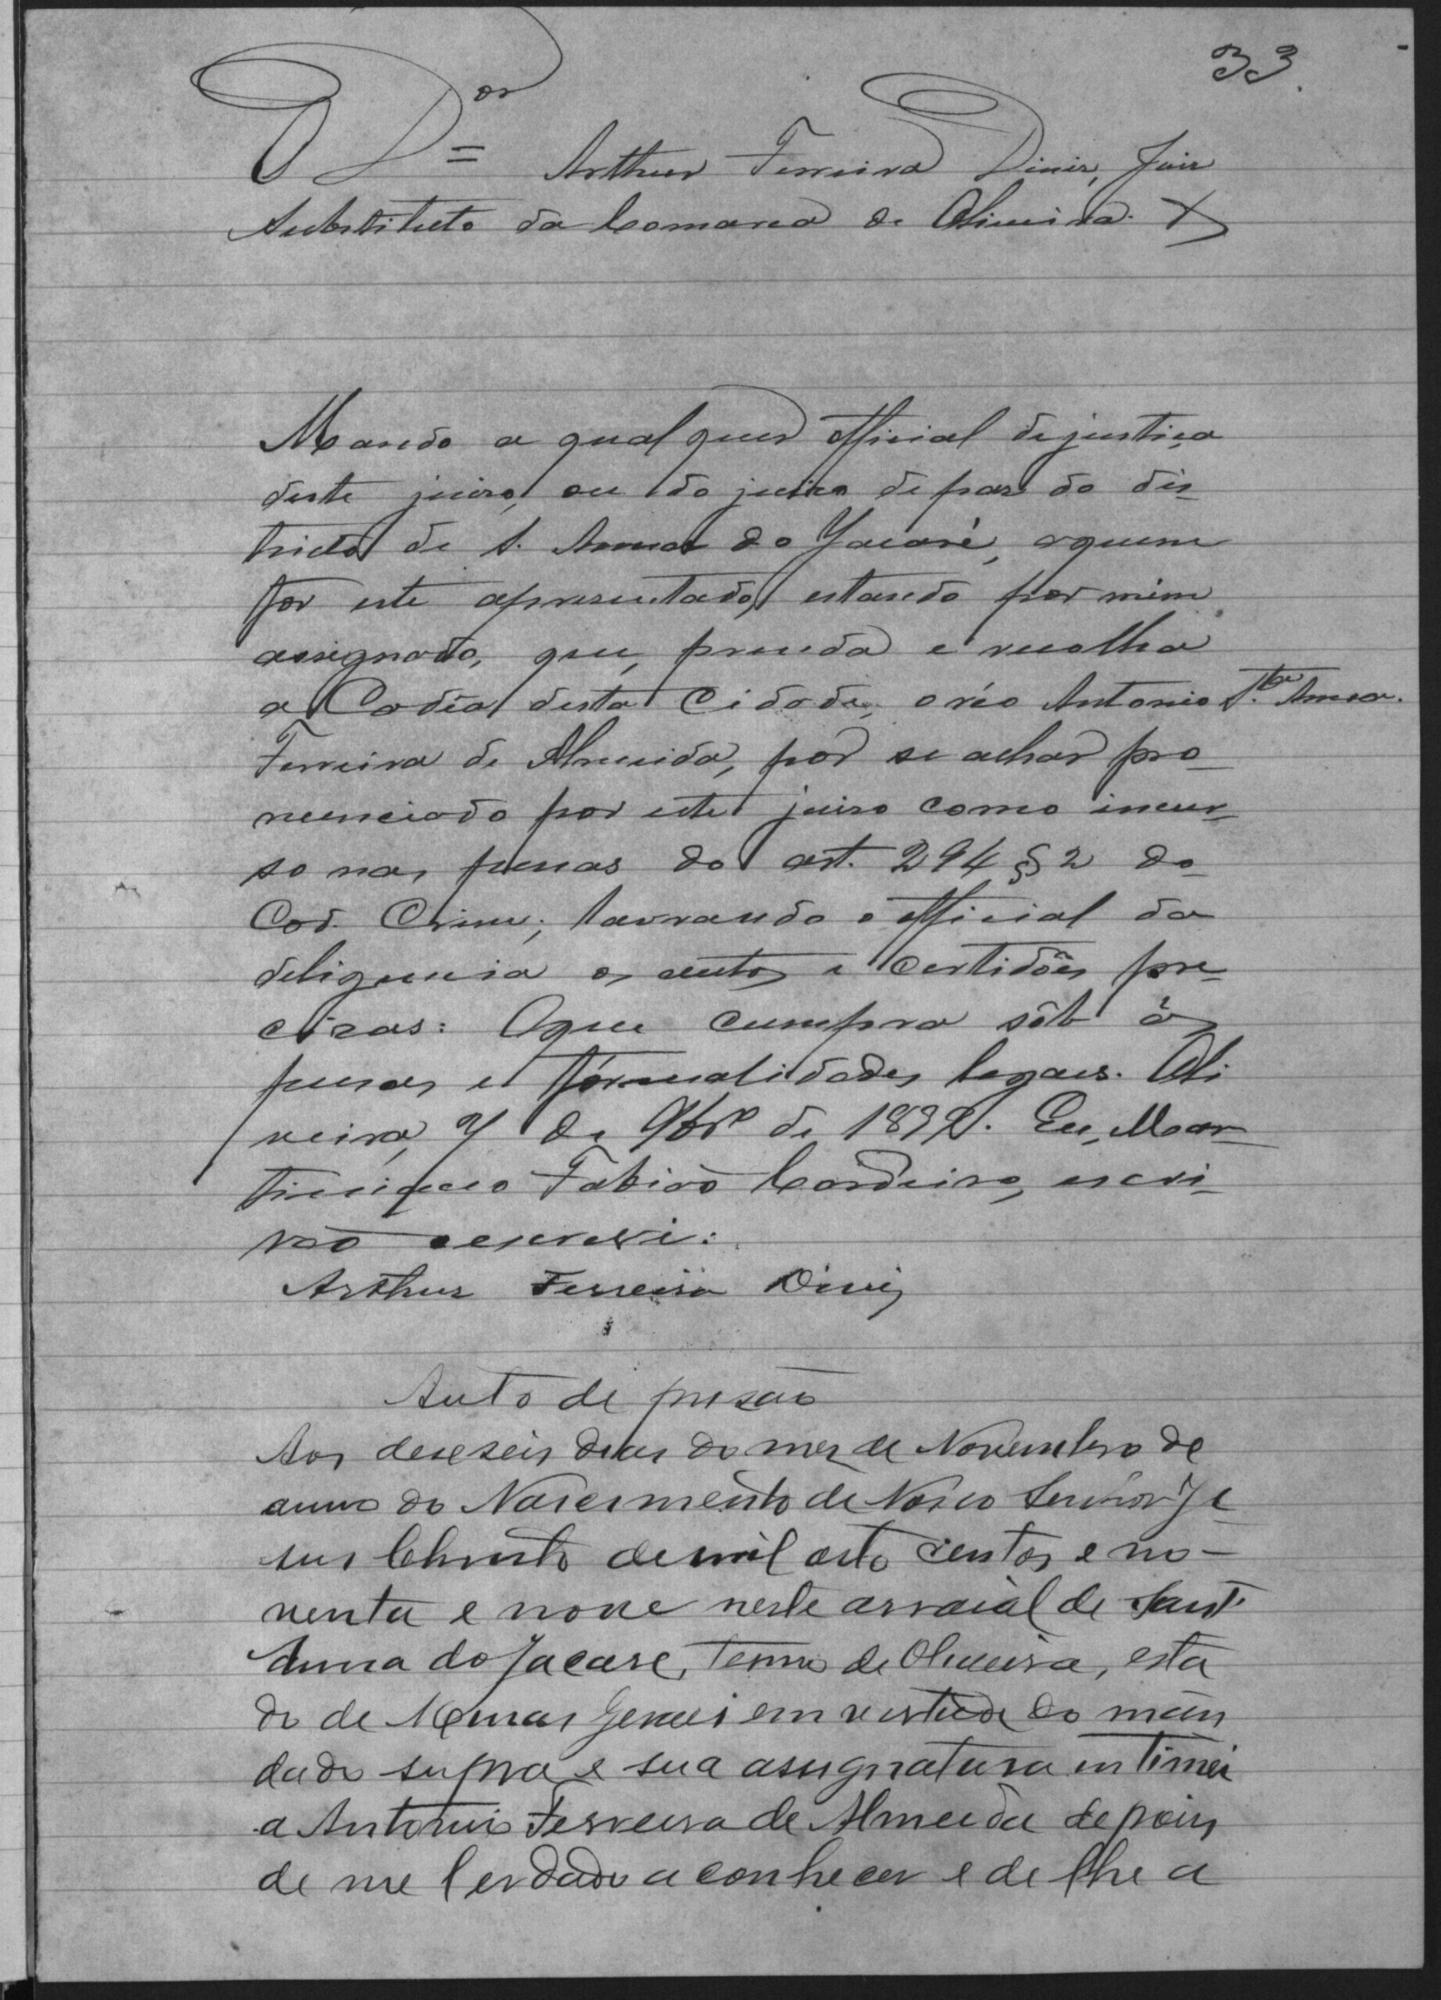 33.
O D.or Arthur Ferreira Diniz, Juiz
Substituto da Comarca de Oliveira. X
Mando a qualquer official de justiça
deste juizo, ou do juizo de paz do dis-
tricto de S. Anna do Jacaré, a quem
for este apresentado, estando por mim
assignado, que, prenda e recolha
a Cadêa desta Cidade, o réo Antonio
Ferreira de Almeida, por se achar pro-
nunciado por este juizo como incur-
so nas penas do art. 294 § 2 do
Cod. Crim.; lavrando o official da
deligencia os autos e certidões pre-
cizas: O que cumpra sôb as
penas e formalidades legaes. Oli
veira, 7 de 9brº de 1899. Eu, Mar-
tiniano Fabião Cordeiro, escri-
vão o escrevi:
Arthur Ferreira Diniz
Auto de prizão
Aos deseseis dias do mez de Novembro de
anno do Nascimento de Nosso Senhor Je
sus Christo de mil oito centos e no-
venta e nove neste arraial de Sant'
Anna do Jacare, Termo de Oliveira, esta
do de Minas Geraes em vertude do man
dado supra e sua assignatura intimei
a Antonio Ferreira de Almeida depois
de me ter dado a conhecer e de lhe a